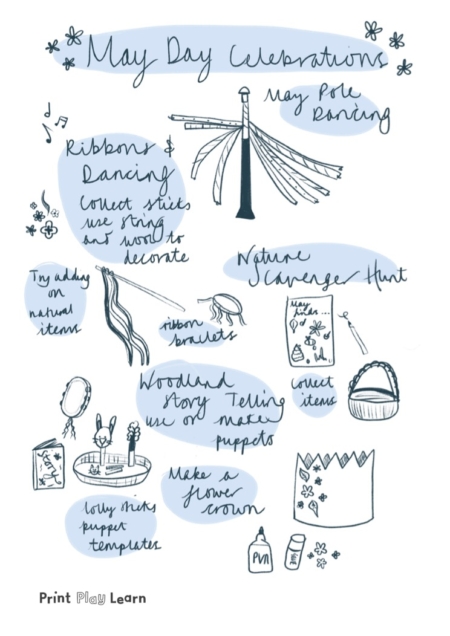 May Day Celebrations
May Pole
Dancing
Ribbons &
Dancing
Collect sticks
use string
and wool to
decorate
Nature
Scavenger Hunt
Try adding
on
natural
items
ribbon
braclets
May
finds...
Woodland
Story Telling
use or make
puppets
collect
items
Story
Make a
flower
crown
lolly sticks
puppet
templates
PVA
Print Play Learn